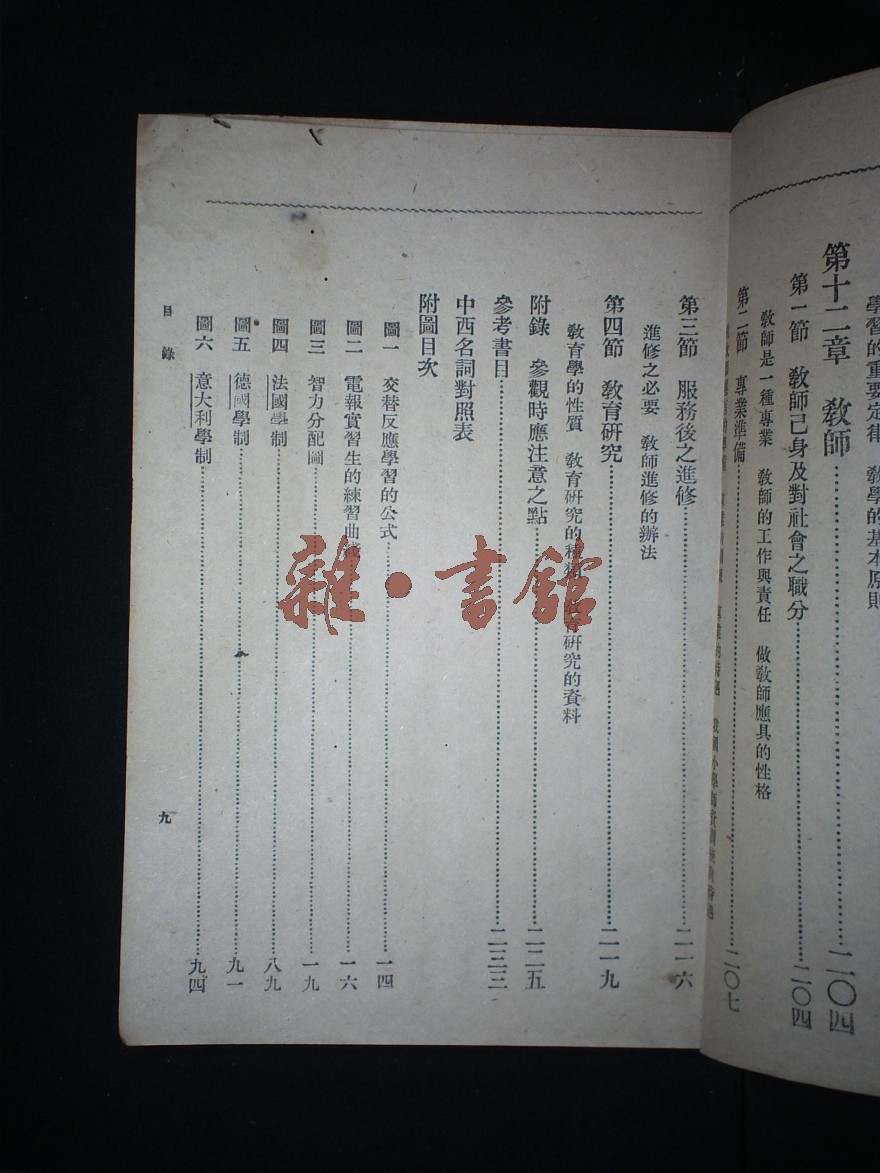 學習的重要定律　教學的基本原則
第十二章　教師……二〇四
第一節　教師己身及對社會之職分……二〇四
教師是一種專業　教師的工作與責任　做教師應具的性格
第二節　專業準備……二〇七
第三節　服務後之進修……二一六
進修之必要　教師進修的辦法
第四節　教育研究……二一九
教育學的性質　教育研究的種類　教育研究的資料
附錄　參觀時應注意之點……二二五
參考書目……二三三
中西名詞對照表
附圖目次
圖一　交替反應學習的公式……一四
圖二　電報實習生的練習曲綫……一六
圖三　智力分配圖……一九
圖四　法國學制……八九
圖五　德國學制……九一
圖六　意大利學制……九四
目錄
九
雜·書館